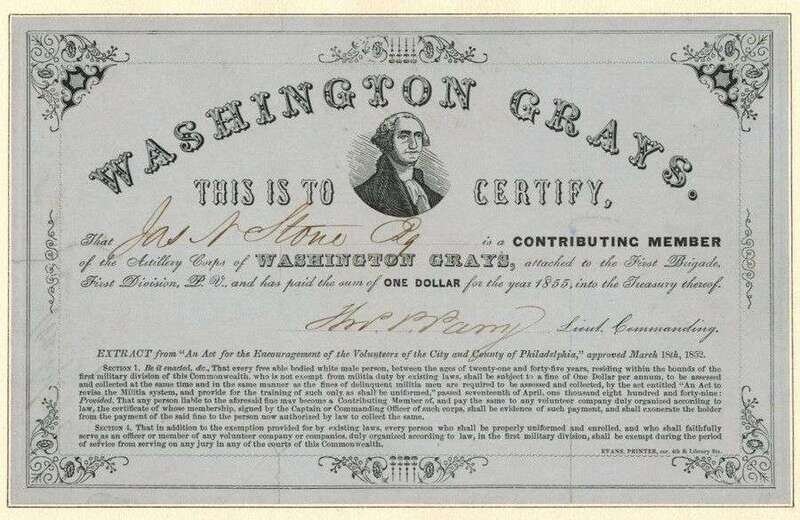 WASHINGTON GRAYS.
THIS IS TO CERTIFY,
That Jas N Stone Esq is a CONTRIBUTING MEMBER
of the Artillery Corps of WASHINGTON GRAYS, attached to the First Brigade,
First Division, P. V., and has paid the sum of ONE DOLLAR for the year 1855, into the Treasury thereof.
Thos. P. Parry Lieut. Commanding.
EXTRACT from "An Act for the Encouragement of the Volunteers of the City and County of Philadelphia," approved March 18th, 1852.
SECTION 1. Be it enacted, &c., That every free able bodied white male person, between the ages of twenty-one and forty-five years, residing within the bounds of the
first military division of this Commonwealth, who is not exempt from militia duty by existing laws, shall be subject to a fine of One Dollar per annum, to be assessed
and collected at the same time and in the same manner as the fines of delinquent militia men are required to be assessed and collected, by the act entitled "An Act to
revise the Militia system, and provide for the training of such only as shall be uniformed," passed seventeenth of April, one thousand eight hundred and forty-nine:
Provided. That any person liable to the aforesaid fine may become a Contributing Member of, and pay the same to any volunteer company duly organized according to
law, the certificate of whose membership, signed by the Captain or Commanding Officer of such corps, shall be evidence of such payment, and shall exonerate the holder
from the payment of the said fine to the person now authorized by law to collect the same.
SECTION 4. That in addition to the exemption provided for by existing laws, every person who shall be properly uniformed and enrolled, and who shall faithfully
serve as an officer or member of any volunteer company or companies, duly organized according to law, in the first military division, shall be exempt during the period
of service from serving on any jury in any of the courts of this Commonwealth.
EVANS, PRINTER, cor. 4th & Library Sts.